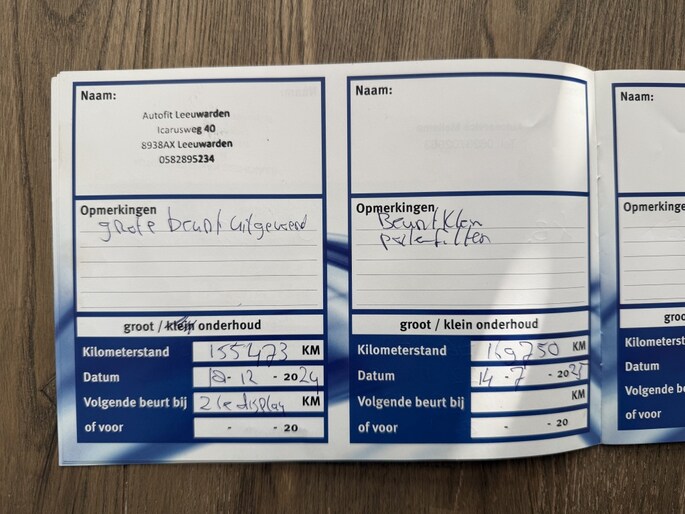 Naam:
Autofit Leeuwarden
Icarusweg 40
8938AX Leeuwarden
0582895234
Opmerkingen
grote beurt uitgevoerd
groot / klein onderhoud
Kilometerstand 155473 KM
Datum 12 - 20 24
Volgende beurt bij Zie display KM
of voor - - 20
Naam:
Opmerkingen
Beurt Klein
pollenfilter
groot / klein onderhoud
Kilometerstand 169750 KM
Datum 14 - 7 - 20 25
Volgende beurt bij KM
of voor - - 20
Naam:
Opmerkinge
groo
Kilometersta
Datum
Volgende be
of voor